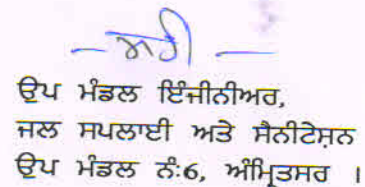 ਸਹੀ
ਉਪ ਮੰਡਲ ਇੰਜੀਨੀਅਰ,
ਜਲ ਸਪਲਾਈ ਅਤੇ ਸੈਨੀਟੇਸ਼ਨ
ਉਪ ਮੰਡਲ ਨੰ:6, ਅੰਮ੍ਰਿਤਸਰ ।